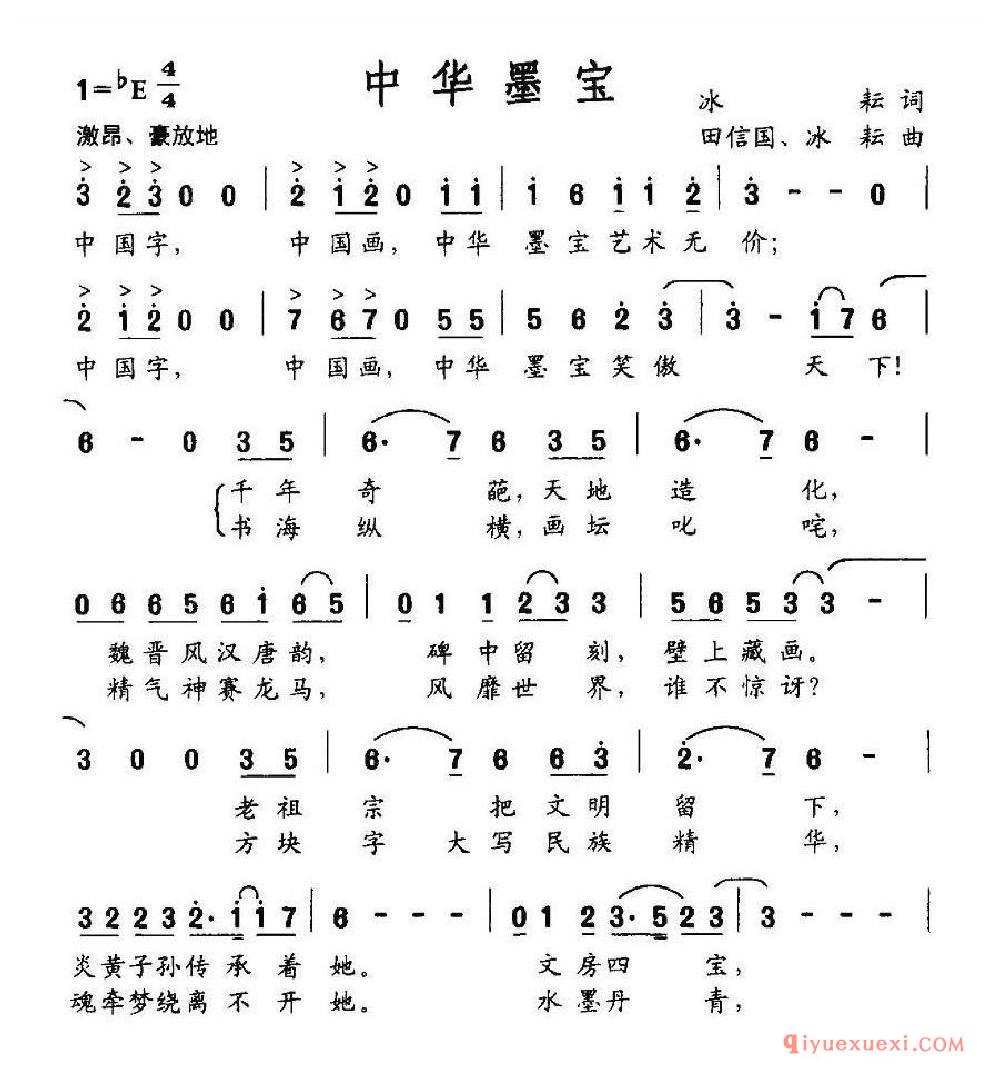 中华墨宝
1=♭E 4/4
冰 耘 词
激昂、豪放地
田信国、冰 耘 曲
3 2 3 0 0 | 2 1 2 0 1 1 | 1 6 1 1 2 | 3 - - 0 |
中国字， 中国画，中华 墨宝艺术无价；
2 1 2 0 0 | 7 6 7 0 5 5 | 5 6 2 3 | 3 - 1 7 6 |
中国字， 中国画，中华 墨宝笑傲 天下！
6 - 0 3 5 | 6· 7 6 3 5 | 6· 7 6 - |
千年奇葩，天地造化，
书海纵横，画坛叱咤，
0 6 6 5 6 1 6 5 | 0 1 1 2 3 3 | 5 6 5 3 3 - |
魏晋风汉唐韵， 碑中留刻，壁上藏画。
精气神赛龙马， 风靡世界，谁不惊讶？
3 0 0 3 5 | 6· 7 6 6 3 | 2· 7 6 - |
老祖宗把文明留下，
方块字大写民族精华，
3 2 2 3 2· 1 1 7 | 6 - - - | 0 1 2 3· 5 2 3 | 3 - - - |
炎黄子孙传承着她。 文房四宝，
魂牵梦绕离不开她。 水墨丹青，
qiyuexuexi.COM